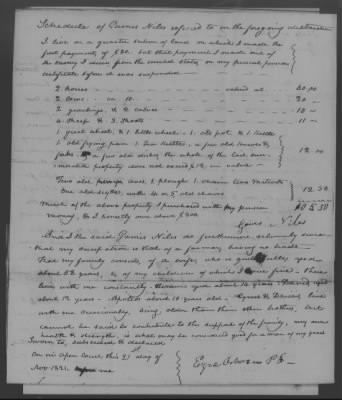 Schedule of James Niles refered to in the forgoing declaration
I live on a quarter section of land on which I made the
first payment of $80. but that payment I made out of
the money I drew from the united states, on my pension
certificate before it was suspended —
2 horses valued at 40.00
2 Cows at 10 20 —
2 yearlings, & 2 calves 18 —
4 Sheep & 3 Shoats 11 —
1 great wheel, & 1 little wheel. 1 ots pot & 1 kettle
1 old frying pan 1 Tea Kettles, a few old knives &
forks, a few old dishes the whole of the last above
mentioned property does not exceed $12 in value 12 00
Two old axes, & plough 1 drawn two
One old scythe, with 4 or 5 old chairs 12 50
Much of the above property I purchased with my pension
money, & I honestly owe above $200.
James Niles
And the said James Niles do furthermore solemnly swear
that my occupation is that of a farmer, having no trade
That my family consists of a wife, who is quite aged
about 58 years, & of my children of which I have five. Three
live with me constantly, aged about 14 years
about 12 years. about 10 years old. & Daniel live
with me occasionally, being older than their other brothers, but
cannot be said to contribute to the support of the family, my own
health & strength is what may be considered good for a man of my years
Sworn to, subscribed & declared
On in Open Court this 21st day of
Nov 1821. before me
Ezra Osborn P. J. —